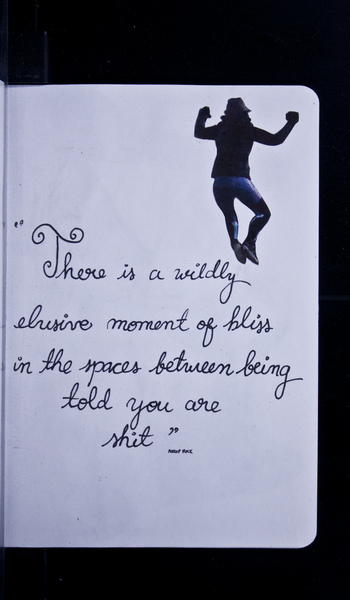 " There is a wildly
elusive moment of bliss
in the spaces between being
told you are
shit "